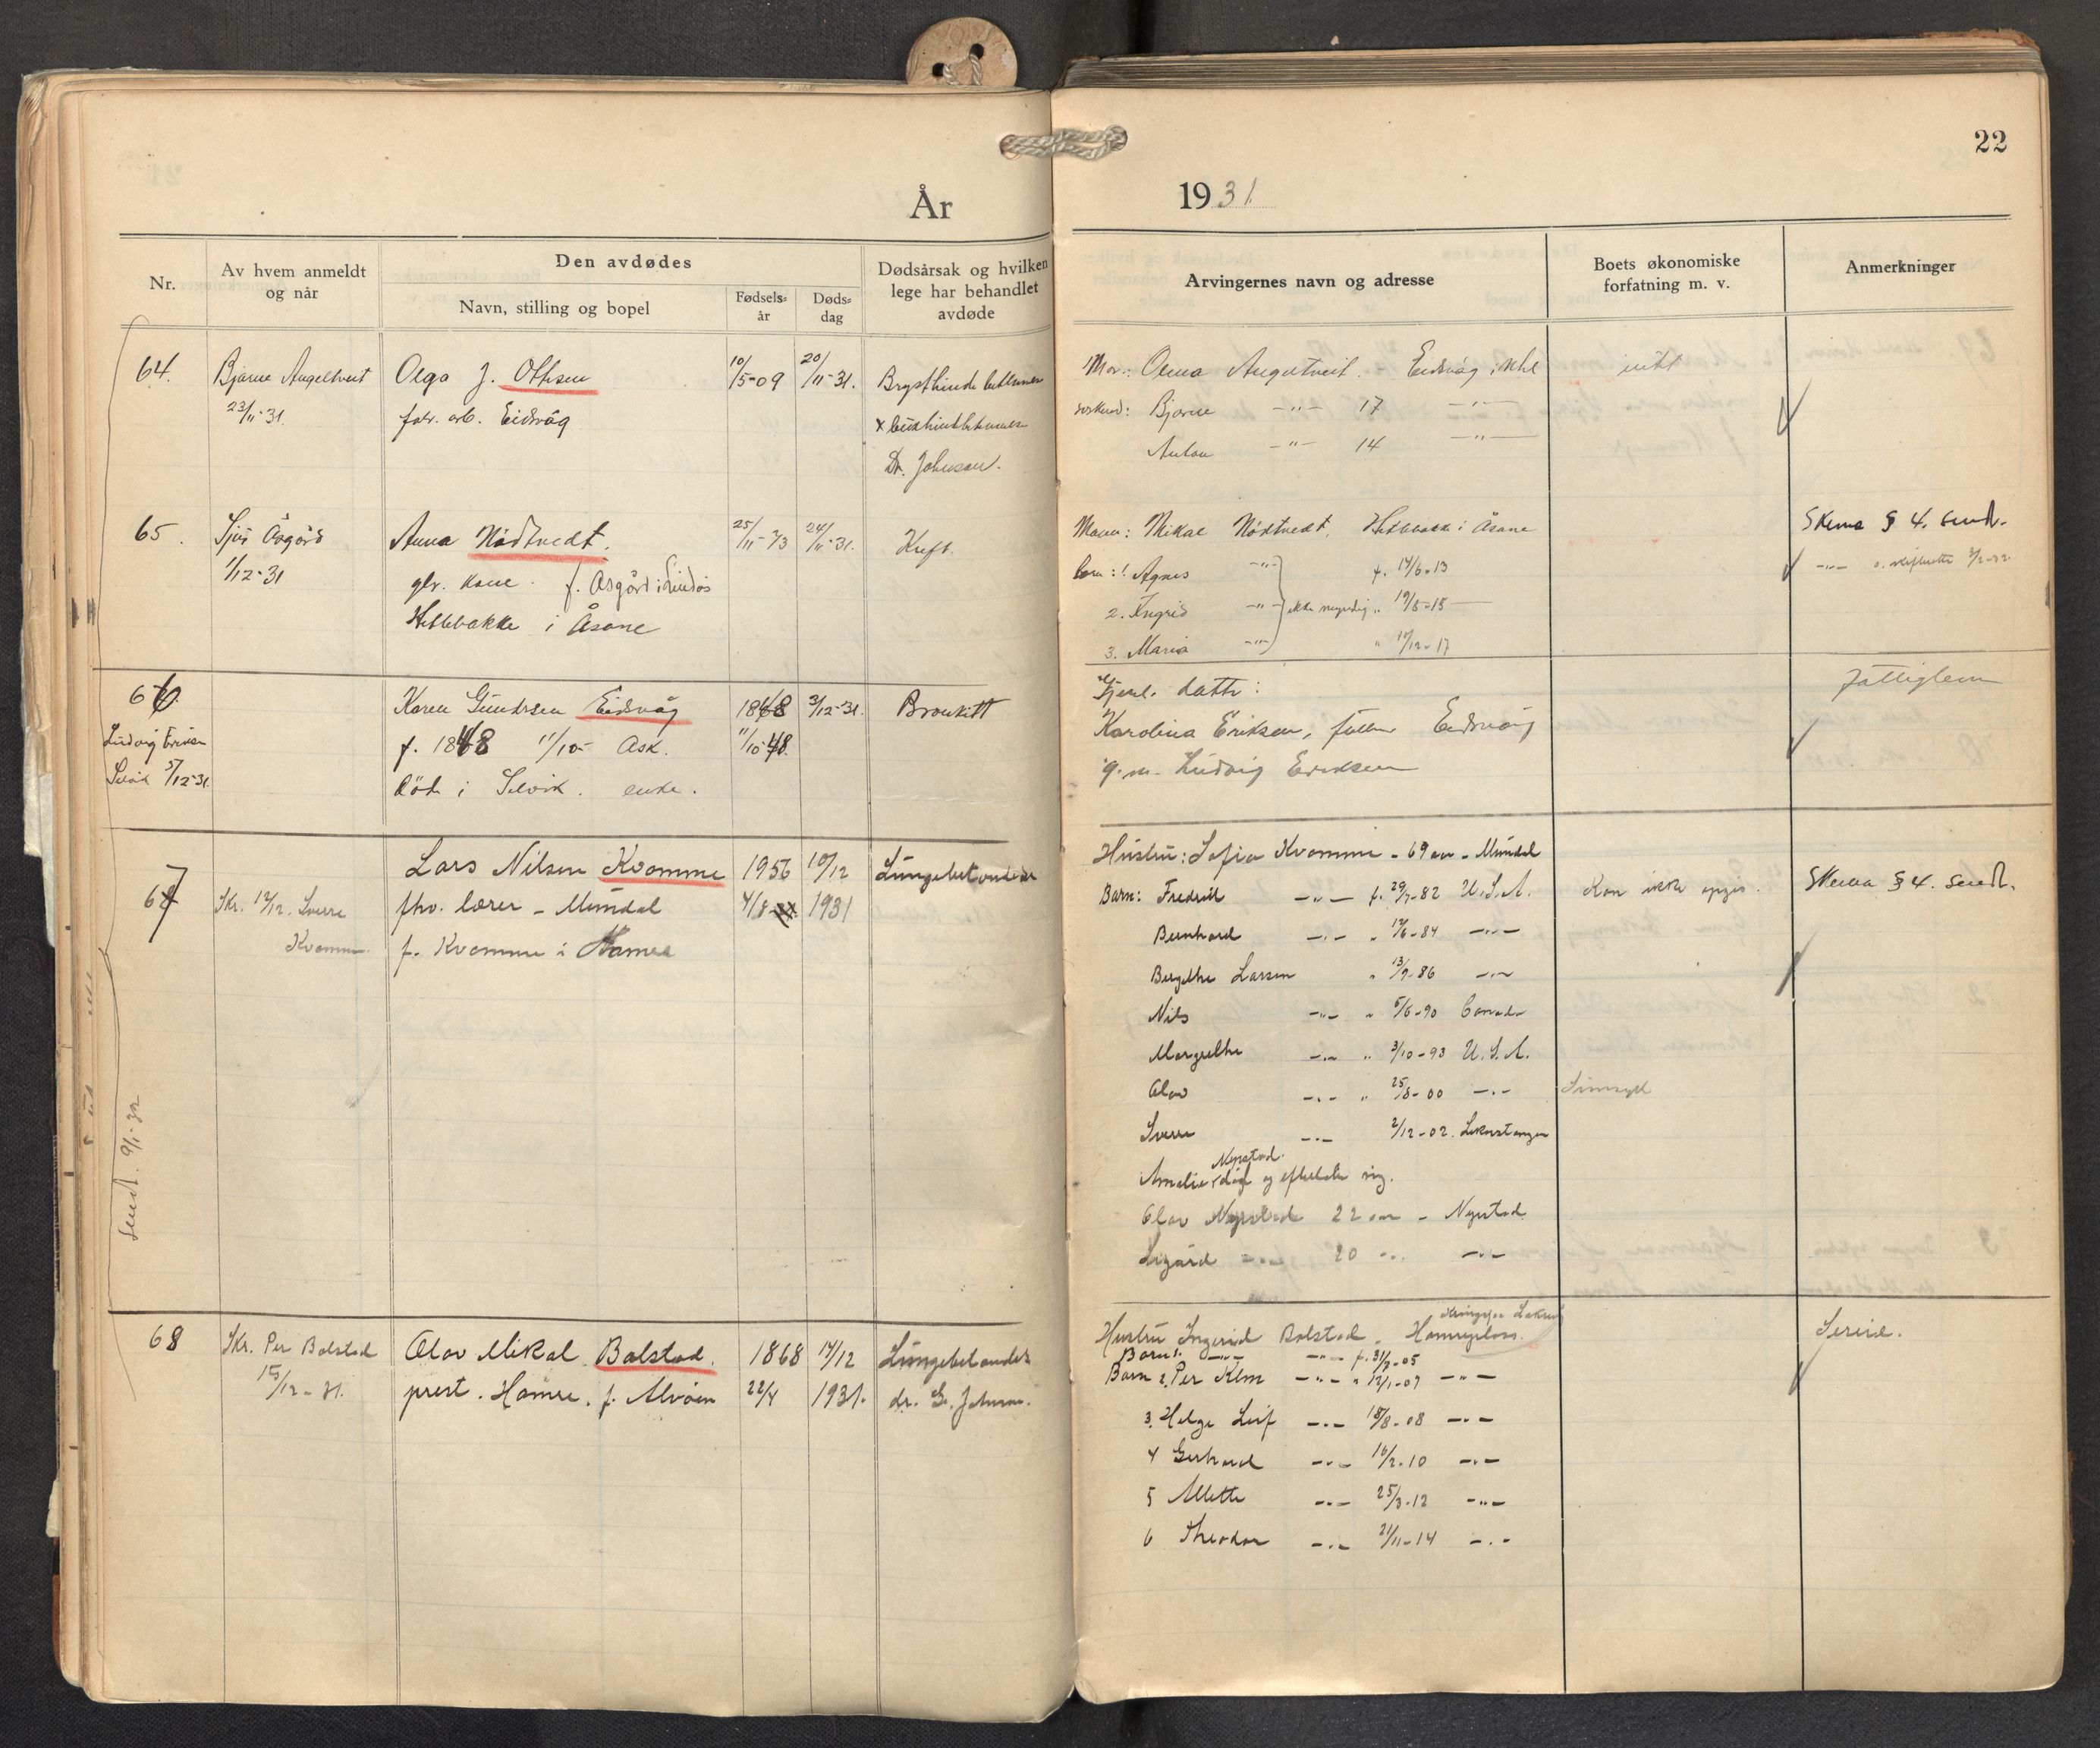 22
År 1931.
Nr.
Av hvem anmeldt og når
Den avdødes
Navn, stilling og bopel
Fødselsår
Dødsdag
Dødsårsak og hvilken lege har behandlet avdøde
Arvingernes navn og adresse
Boets økonomiske forfatning m. v.
Anmerkninger
64. Bjarne Angeltveit Olga J. Ottesen 10/5-09 20/11-31.
23/11-31. fabr. arb. Eidsvåg
Dr. Johnson.
Mor: Angeltveit - Eidsvåg intet
søskend: Bjarne -"- 17 -"-
Anton -"- 14 -"-
65. Sjur Åsgård Anna Nødtvedt. 25/11-73 24/11-31. Kreft.
1/12-31 gbr. kone. f. Åsgård i Lindås
Hetlebakke i Åsane
Mann: Mikal Nødtvedt, Hetlebakk i Åsane Skema § 4. sendt.
barn: 1. Agnes -"- f. 14/6-13 -"- o. skifterette
2. Ingrid -"- ikke myndig " 19/5-15
3. Maria -"- " 10/12-17
66. Karen Gundersen Eidsvåg 1848 3/12-31. Bronkitt
Ludvig Eriksen f. 1848 11/10- Ask. 11/10-48.
Selvik 5/12-31. død i Selvik. enke.
Gjenl. datter: Fattiglem
Karolina Eriksen, Eidsvåg
g. m. Ludvig Eriksen
67 Skr. 12/12. Sverre Kvamme. Lars Nilsen Kvamme 1956 10/12 Lungebetendelse
fhv. lærer - Mundal 4/8 1931
f. Kvamme i Hamre
Hustru: Sofia Kvamme - 69 aar - Mundal
Barn: Fredrik -"- f. 29/7-82 U.S.A. Kan ikke opgis. Skema § 4. sendt.
Bernhard -"- " 12/6-84 -"-
Bergithe Larsen " 13/9-86 -"-
Nils -"- " 5/6-90 Canada
Margrethe -"- " 3/10-93 U.S.A.
Olav -"- " 25/8-00 -"- Sinnsyk
Sverre -"- 2/12-02.
Nyestad.
Amalie, død og efterlater sig.
Olav Nyestad 22 aar - Nyestad
Sigurd -"- 20 -"- -"-
sendt. 9/1-32
68 Skr. Per Bolstad Olav Mikal Bolstad. 1868 14/12 Lungebetendelse
15/12-31. prest. Hamre. f. Alvøen 22/4 1931. dr. G. Johnson.
Hustru Ingerid Bolstad -
Barn 1. -"- -"- f. 31/3-05
Barn 2. Per Klm -"- " 12/1-07 -"-
3. Helge Leif -"- 18/8-08 -"-
4 Gerhard -"- 16/2-10 -"-
5 Mette -"- 25/3-12 -"-
6 Theodor -"- 21/11-14 -"-